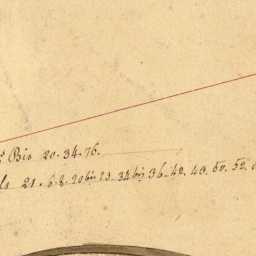 Bis 20. 34. 76.
21. 62. 20 bis 23. 34 bis 36. 42. 49. 50. 52.